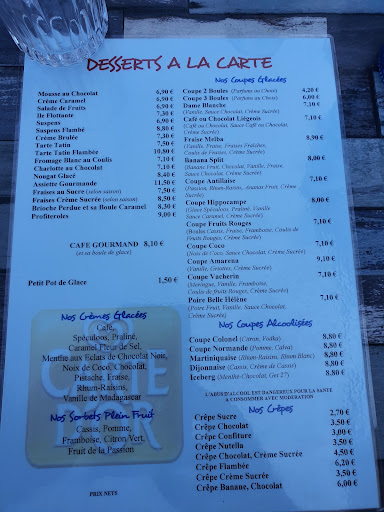 DESSERTS A LA CARTE
Mousse au Chocolat 6,90 €
Crème Caramel 6,90 €
Salade de Fruits 6,90 €
Ile Flottante 7,30 €
Suspens 6,90 €
Suspens Flambé 8,80 €
Crème Brulée 7,30 €
Tarte Tatin 7,50 €
Tarte Tatin Flambée 10,80 €
Fromage Blanc au Coulis 7,10 €
Charlotte au Chocolat 7,10 €
Nougat Glacé 8,40 €
Assiette Gourmande 11,50 €
Fraises au Sucre (selon saison) 7,50 €
Fraises Crème Sucrée (selon saison) 8,50 €
Brioche Perdue et sa Boule Caramel 8,30 €
Profiteroles 9,00 €
CAFE GOURMAND 8,10 €
(et sa boule de glace)
Petit Pot de Glace 1,50 €
Nos Crèmes Glacées
Café,
Spéculoos, Praliné,
Caramel Fleur de Sel,
Menthe aux Eclats de Chocolat Noir,
Noix de Coco, Chocolat,
Pistache, Fraise,
Rhum-Raisins,
Vanille de Madagascar
Nos Sorbets Plein Fruit
Cassis, Pomme,
Framboise, Citron Vert,
Fruit de la Passion
PRIX NETS
Nos Coupes Glacées
Coupe 2 Boules (Parfums au Choix) 4,20 €
Coupe 3 Boules (Parfums au Choix) 6,00 €
Dame Blanche 7,10 €
(Vanille, Sauce Chocolat, Crème Sucrée)
Café ou Chocolat Liégeois 7,10 €
(Café ou Chocolat, Sauce Café ou Chocolat,
Crème Sucrée)
Fraise Melba 8,90 €
(Vanille, Fraise, Fraises Fraîches,
Coulis de Fraises, Crème Sucrée)
Banana Split 8,00 €
(Banane Fruit, Chocolat, Vanille, Fraise,
Sauce Chocolat, Crème Sucrée)
Coupe Antillaise 7,10 €
(Passion, Rhum-Raisins, Ananas Fruit, Crème
Sucrée)
Coupe Hippocampe 8,00 €
(Glace Spéculoos, Praliné, Vanille
Sauce Caramel, Crème Sucrée)
Coupe Fruits Rouges 7,10 €
(Boules Cassis, Fraise, Framboise, Coulis de
Fruits Rouges, Crème Sucrée)
Coupe Coco 7,10 €
(Noix de Coco, Sauce Chocolat, Crème Sucrée)
Coupe Amarena 9,10 €
(Vanille, Griottes, Crème Sucrée)
Coupe Vacherin 7,10 €
(Meringue, Vanille, Framboise,
Coulis de fruits Rouges, Crème Sucrée)
Poire Belle Hélène 7,10 €
(Poire Fruit, Vanille, Sauce Chocolat,
Crème Sucrée)
Nos Coupes Alcoolisées
Coupe Colonel (Citron, Vodka) 8,80 €
Coupe Normande (Pomme, Calva) 8,80 €
Martiniquaise (Rhum-Raisins, Rhum Blanc) 8,80 €
Dijonnaise (Cassis, Crème de Cassis) 8,80 €
Iceberg (Menthe-Chocolat, Get 27) 8,80 €
L'ABUS D'ALCOOL EST DANGEREUX POUR LA SANTE
A CONSOMMER AVEC MODERATION
Nos Crêpes
Crêpe Sucre 2,70 €
Crêpe Chocolat 3,50 €
Crêpe Confiture 3,00 €
Crêpe Nutella 3,50 €
Crêpe Chocolat, Crème Sucrée 4,50 €
Crêpe Flambée 6,20 €
Crêpe Crème Sucrée 3,50 €
Crêpe Banane, Chocolat 6,00 €